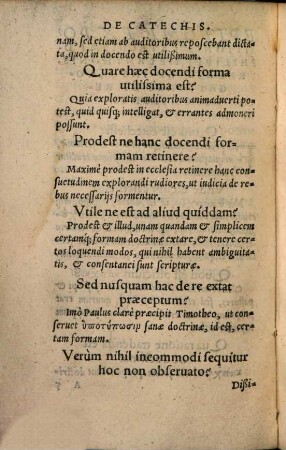 DE CATECHIS.
nam, sed etiam ab auditoribus reposcebant dicta-
ta, quod in docendo est utilißimum.
Quare hæc docendi forma
utilissima est?
Quia exploratis auditoribus animaduerti po-
test, quid quisq; intelligat, & errantes admoneri
possunt.
Prodest ne hanc docendi for-
mam retinere?
Maximè prodest in ecclesia retinere hanc con-
suetudinem explorandi rudiores, ut iudicia de re-
bus necessarijs formentur.
Vtile ne est ad aliud quiddam?
Prodest & illud, unam quandam & simplicem
certamq; formam doctrinæ extare, & tenere cer-
tos loquendi modos, qui nihil habent ambiguita-
tis, & consentanei sunt scripturæ.
Sed nusquam hac de re extat
præceptum?
Imò Paulus clarè præcipit Timotheo, ut con-
seruet ὑποτύπωσιν sanæ doctrinæ, id est, cer-
tam formam.
Verùm nihil incommodi sequitur
hoc non obseruato?
Dißi-